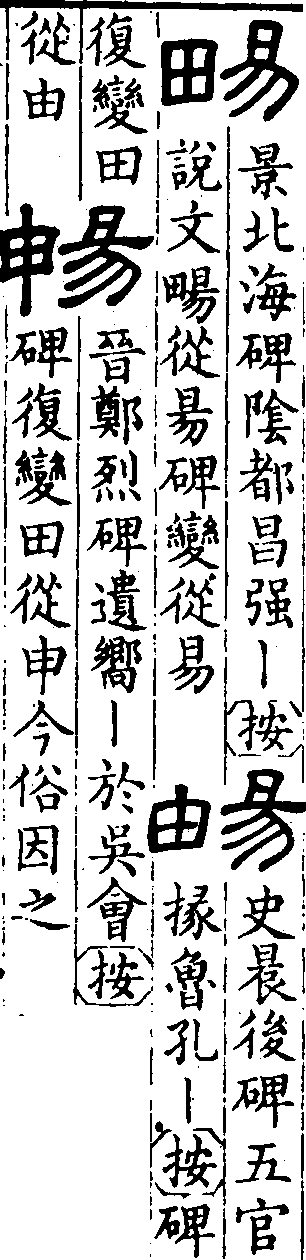 景北海碑陰都昌强丨按
說文畼從昜碑變從易
史晨後碑五官
掾魯孔丨按碑
復變田
從由
暢
晉鄭烈碑遺嚮丨於吳會按
碑復變田從申今俗因之